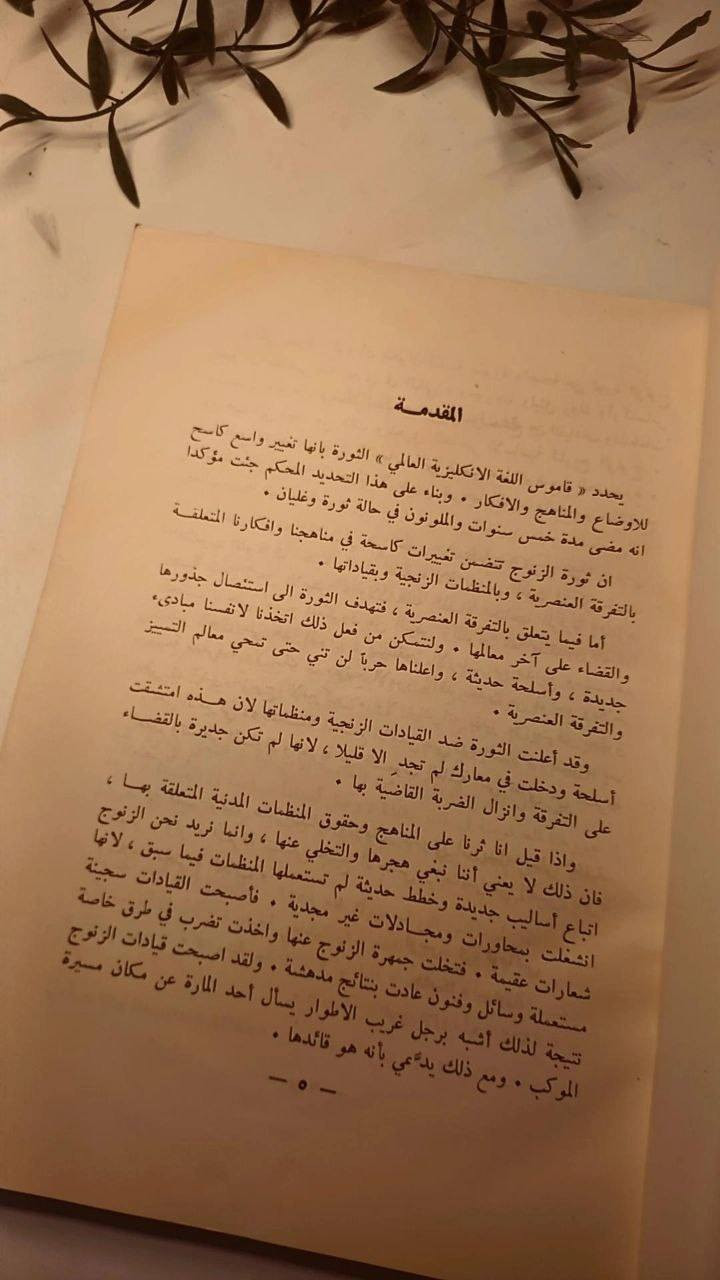 المقدمــة
يحدد « قاموس اللغة الانكليزية العالمي » الثورة بانها تغيير واسع كاسح
للاوضاع والمناهج والافكار . وبناء على هذا التحديد المحكم جئت مؤكدا
انه مضى مدة خمس سنوات والملونون في حالة ثورة وغليان .
ان ثورة الزنوج تتضمن تغييرات كاسحة في مناهجنا وافكارنا المتعلقــة
بالتفرقة العنصرية ، وبالمنظمات الزنجية وبقياداتها .
أما فيما يتعلق بالتفرقة العنصرية ، فتهدف الثورة الى استئصال جذورها
والقضاء على آخر معالمها . ولنتمكن من فعل ذلك اتخذنا لانفسنا مبادىء
جديدة ، وأسلحة حديثة ، واعلناها حرباً لن تني حتى تمحي معالم التمييز
والتفرقة العنصرية .
وقد أعلنت الثورة ضد القيادات الزنجية ومنظماتها لان هــذه امتشقت
أسلحة ودخلت في معارك لم تجد الا قليلا ، لانها لم تكن جديرة بالقضــاء
على التفرقة وانزال الضربة القاضية بها .
واذا قيل انا ثرنا على المناهج وحقوق المنظمات المدنية المتعلقة بهــا ،
فان ذلك لا يعني أننا نبغي هجرها والتخلي عنها ، وانما نريد نحن الزنوج
اتباع أساليب جديدة وخطط حديثة لم تستعملها المنظمات فيما سبق ، لانها
انشغلت بمحاورات ومجــادلات غير مجدية . فأصبحت القيادات سجينة
شعارات عقيمة . فتخلت جمهرة الزنوج عنها واخذت تضرب في طرق خاصة
مستعملة وسائل وفنون عادت بنتائج مدهشة . ولقد اصبحت قيادات الزنوج
نتيجة لذلك أشبه برجل غريب الاطوار يسأل أحد المارة عن مكان مسيرة
الموكب . ومع ذلك يدَّعي بأنه هو قائدها .
— ٥ —